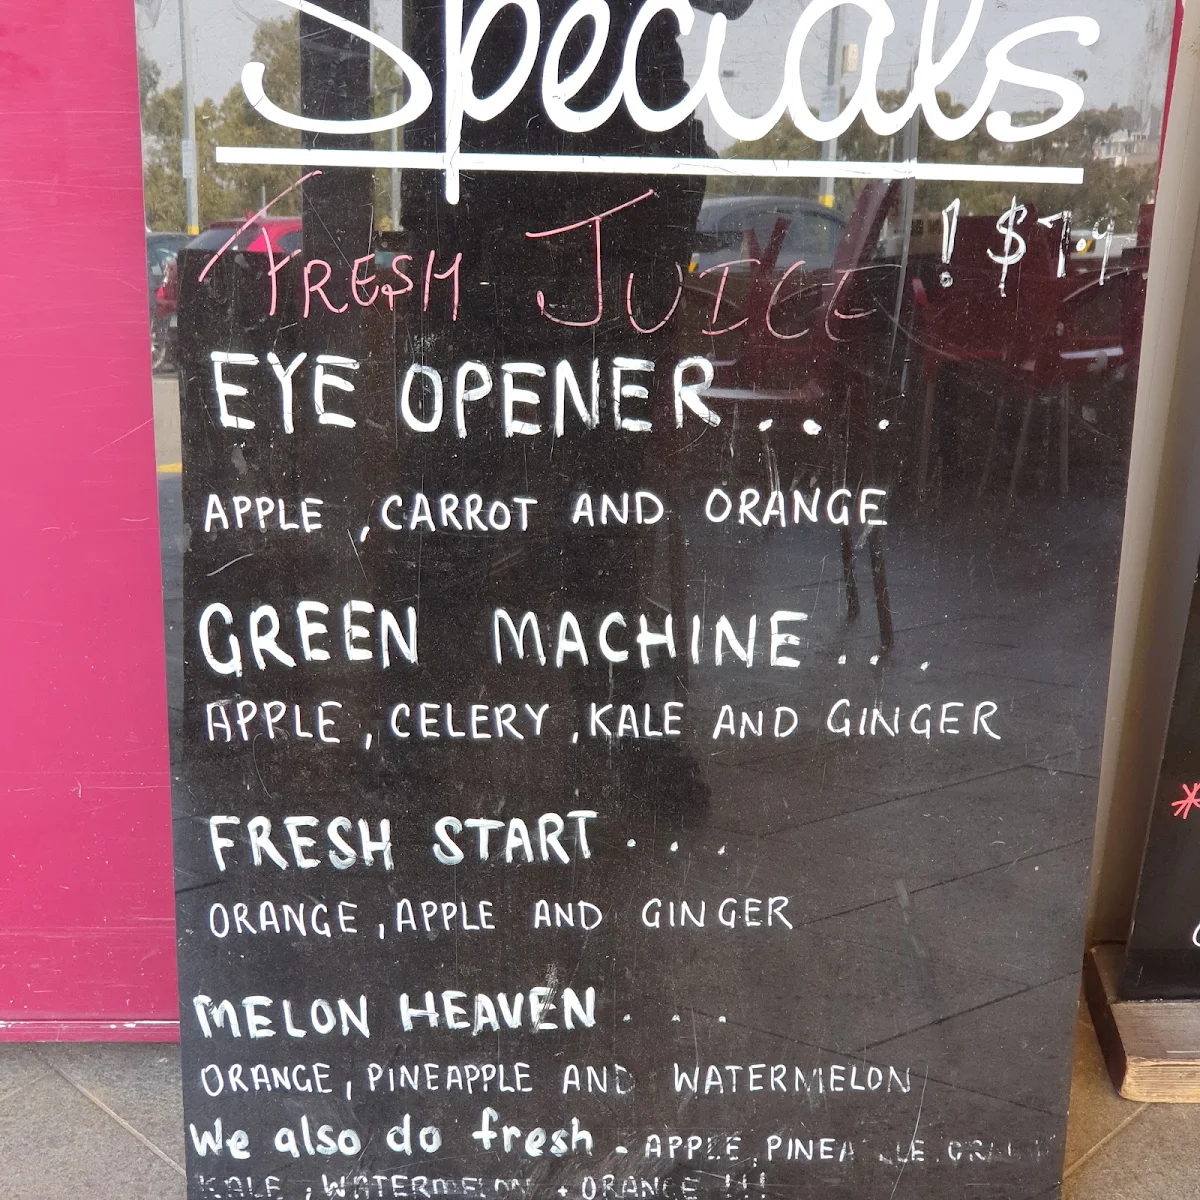 Specials
FRESH JUICE ! $7.9
EYE OPENER . . .
APPLE , CARROT AND ORANGE
GREEN MACHINE . . .
APPLE , CELERY , KALE AND GINGER
FRESH START . . .
ORANGE , APPLE AND GINGER
MELON HEAVEN . . .
ORANGE , PINEAPPLE AND WATERMELON
We also do fresh . APPLE , 
KALE , WATERMELON , ORANGE !!!